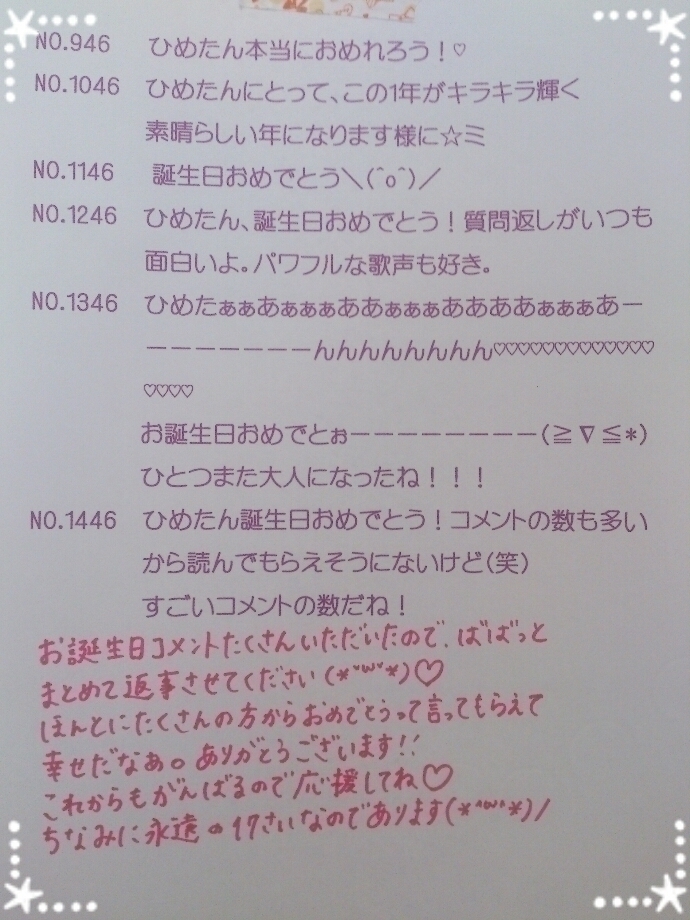 NO.946 ひめたん本当におめれろう！♡
NO.1046 ひめたんにとって、この1年がキラキラ輝く
素晴らしい年になります様に☆ミ
NO.1146 誕生日おめでとう＼(^o^)／
NO.1246 ひめたん、誕生日おめでとう！質問返しがいつも
面白いよ。パワフルな歌声も好き。
NO.1346 ひめたぁぁあぁぁぁああぁぁぁああああぁぁぁあー
ーーーーーーーんんんんんんんん♡♡♡♡♡♡♡♡♡♡♡♡♡
♡♡♡♡
お誕生日おめでとぉーーーーーーーー(≧∇≦*)
ひとつまた大人になったね！！！
NO.1446 ひめたん誕生日おめでとう！コメントの数も多い
から読んでもらえそうにないけど(笑)
すごいコメントの数だね！
お誕生日コメントたくさんいただいたので、ばばっと
まとめて返事させてください(*ˇωˇ*)♡
ほんとにたくさんの方からおめでとうって言ってもらえて
幸せだなあ。ありがとうございます!!
これからもがんばるので応援してね♡
ちなみに永遠の17さいなのであります(*ˆωˆ*)/